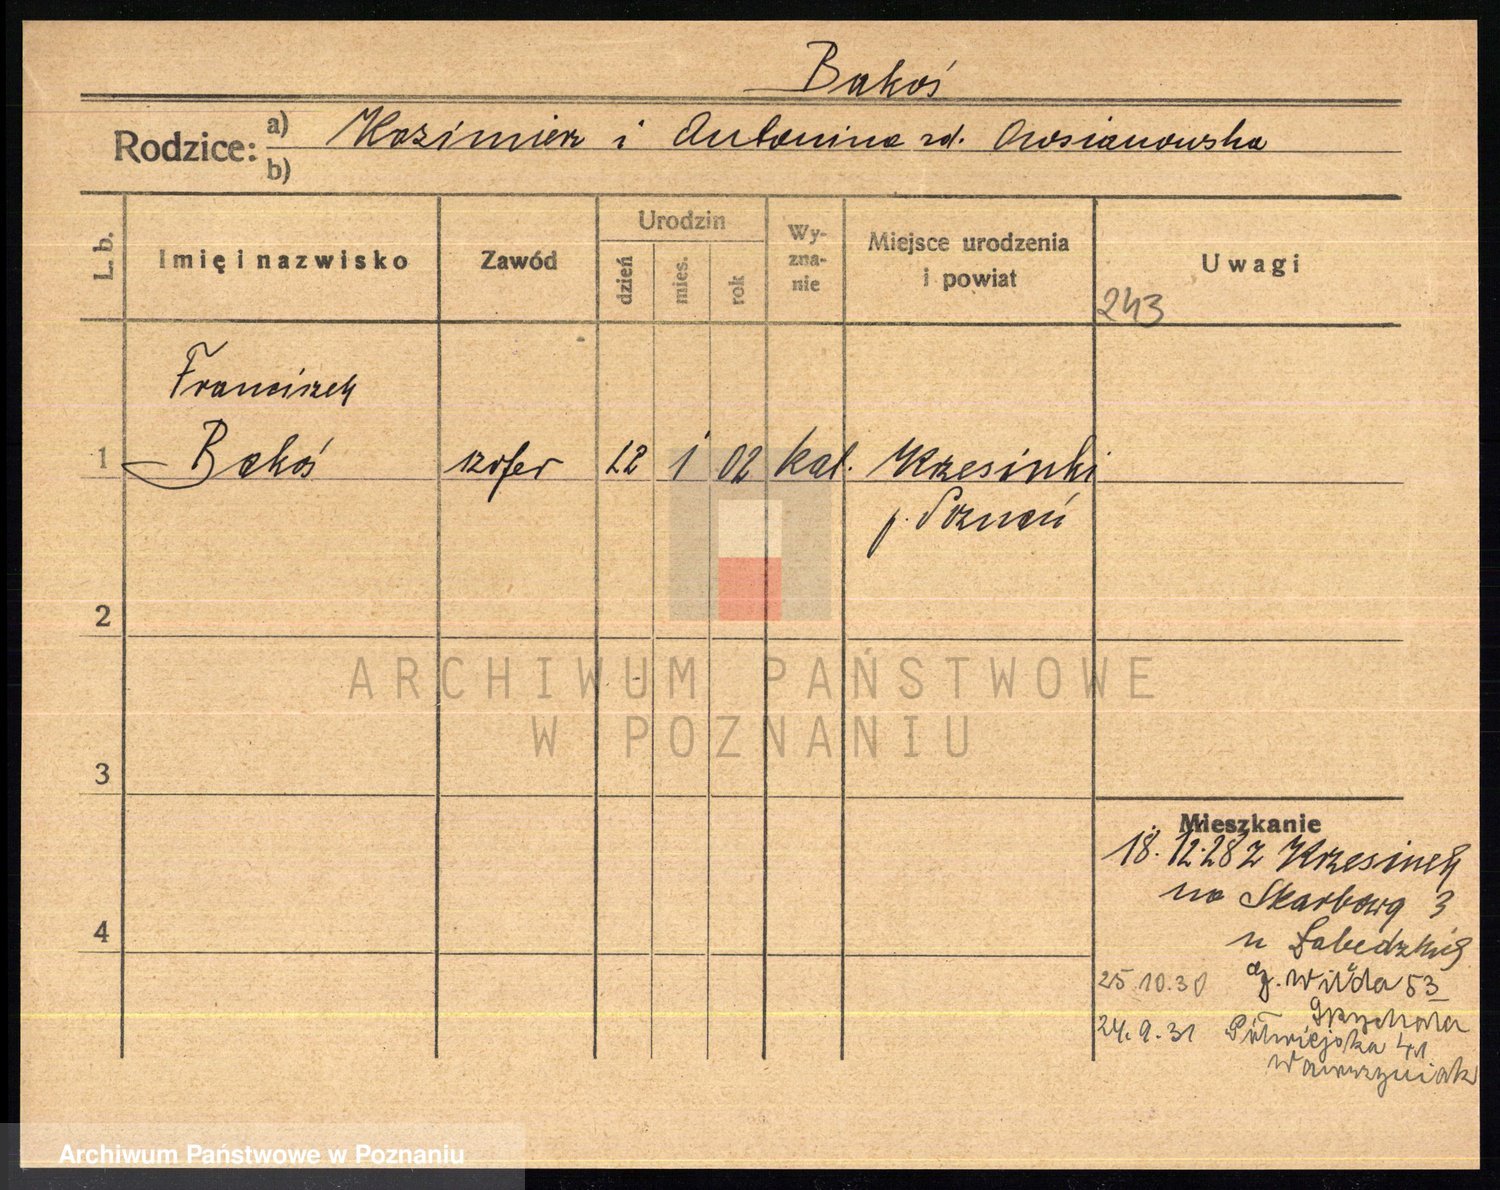 Bakoś
Rodzice: a) Kazimierz i Antonina zd. Owsianowska
b)
L. b. Imię i nazwisko Zawód Urodzin dzień mies. rok Wyznanie Miejsce urodzenia i powiat Uwagi
243
Franciszek
1 Bakoś szofer 22 1 02 kat. Krzesinki
p. Poznań
2
3
4
Mieszkanie
18.12.28 z Krzesinek
na Skarbową 3
u
25.10.30 g. Wilda 53
Grzychata
24.9.31 Półwiejska 41
Wawrzyniak
ARCHIWUM PAŃSTWOWE
W POZNANIU
Archiwum Państwowe w Poznaniu